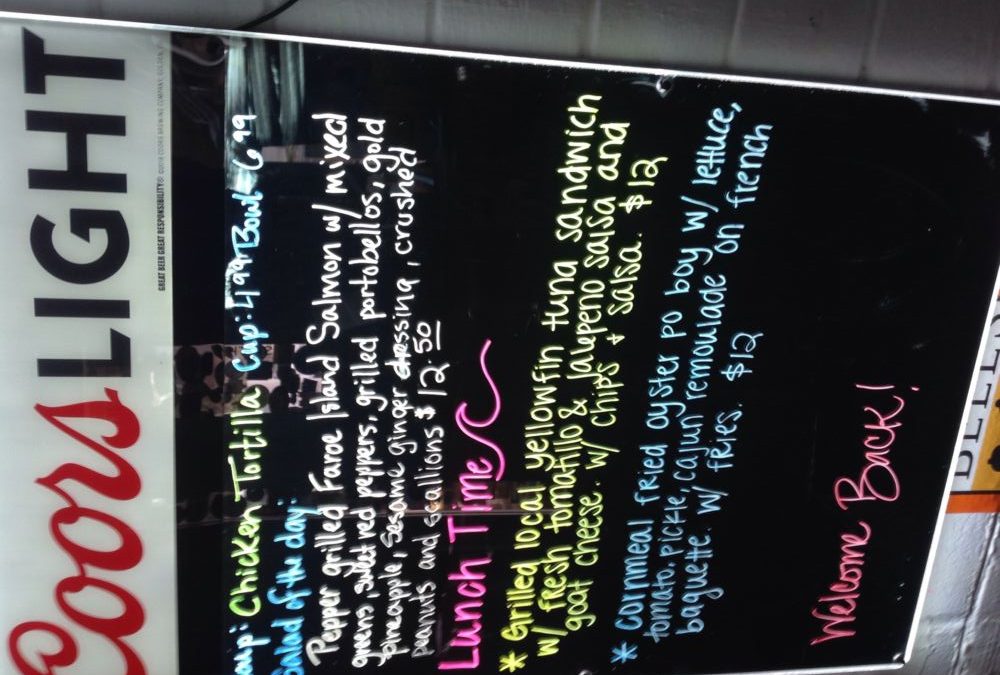 Coors LIGHT
GREAT BEER GREAT RESPONSIBILITY® ©2018 COORS BREWING COMPANY, GOLDEN,
oup: Chicken Tortilla Cup: 4.99 Bowl 6.99
Salad of the day:
Pepper grilled Faroe Island Salmon w/ mixed
greens, sweet red peppers, grilled portobellos, gold
pineapple, sesame ginger dressing, crushed
peanuts and scallions $12.50
Lunch Time
* Grilled local yellowfin tuna sandwich
w/ fresh tomatillo & Jalepeno salsa and
goat cheese. w/ chips + salsa. $12
* cornmeal fried oyster po boy w/ lettuce,
tomato, pickle, cajun remoulade on french
baguette. w/ fries. $12
Welcome Back!